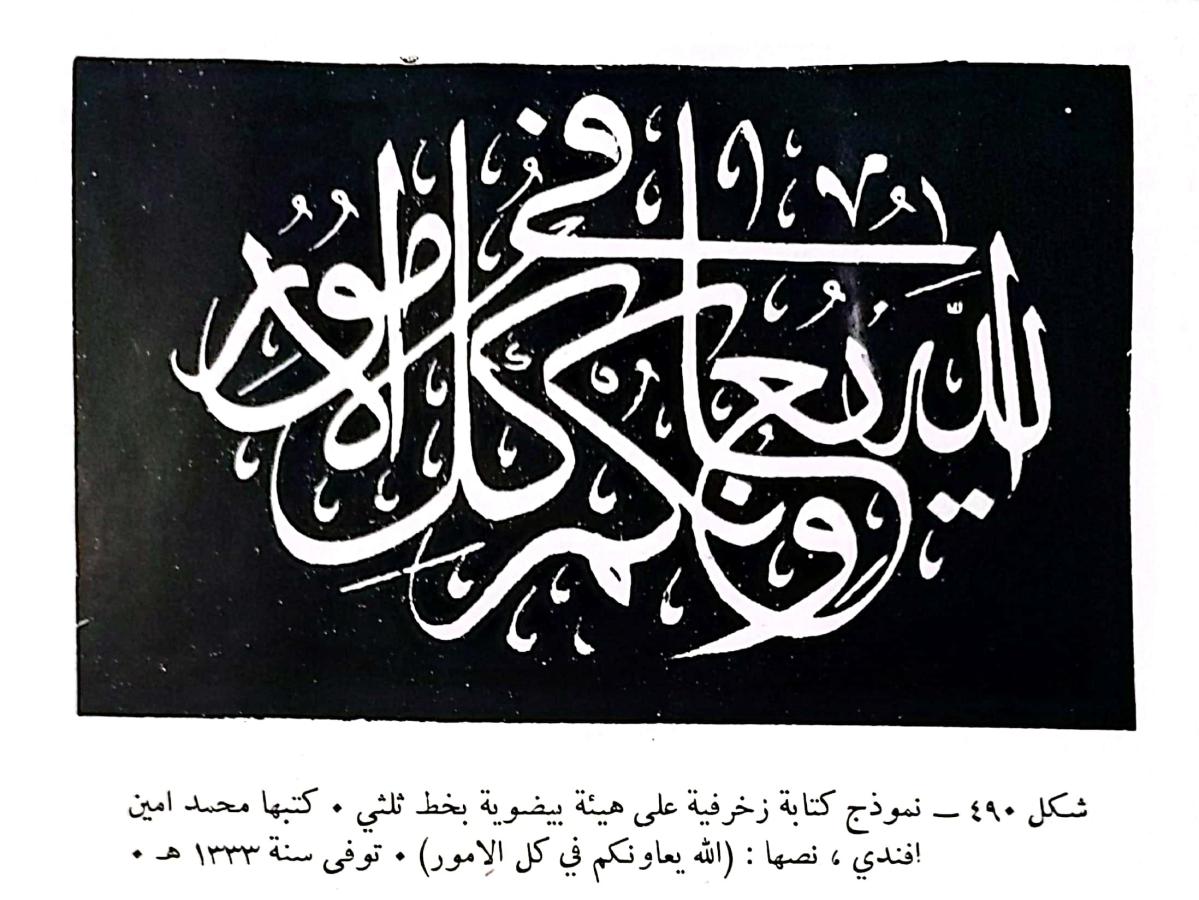 الله يعاونكم في كل الامور
شكل ٤٩٠ ــ نموذج كتابة زخرفية على هيئة بيضوية بخط ثلثي • كتبها محمد امين
افندي ، نصها : (الله يعاونكم في كل الامور) • توفى سنة ١٣٣٣ هـ •